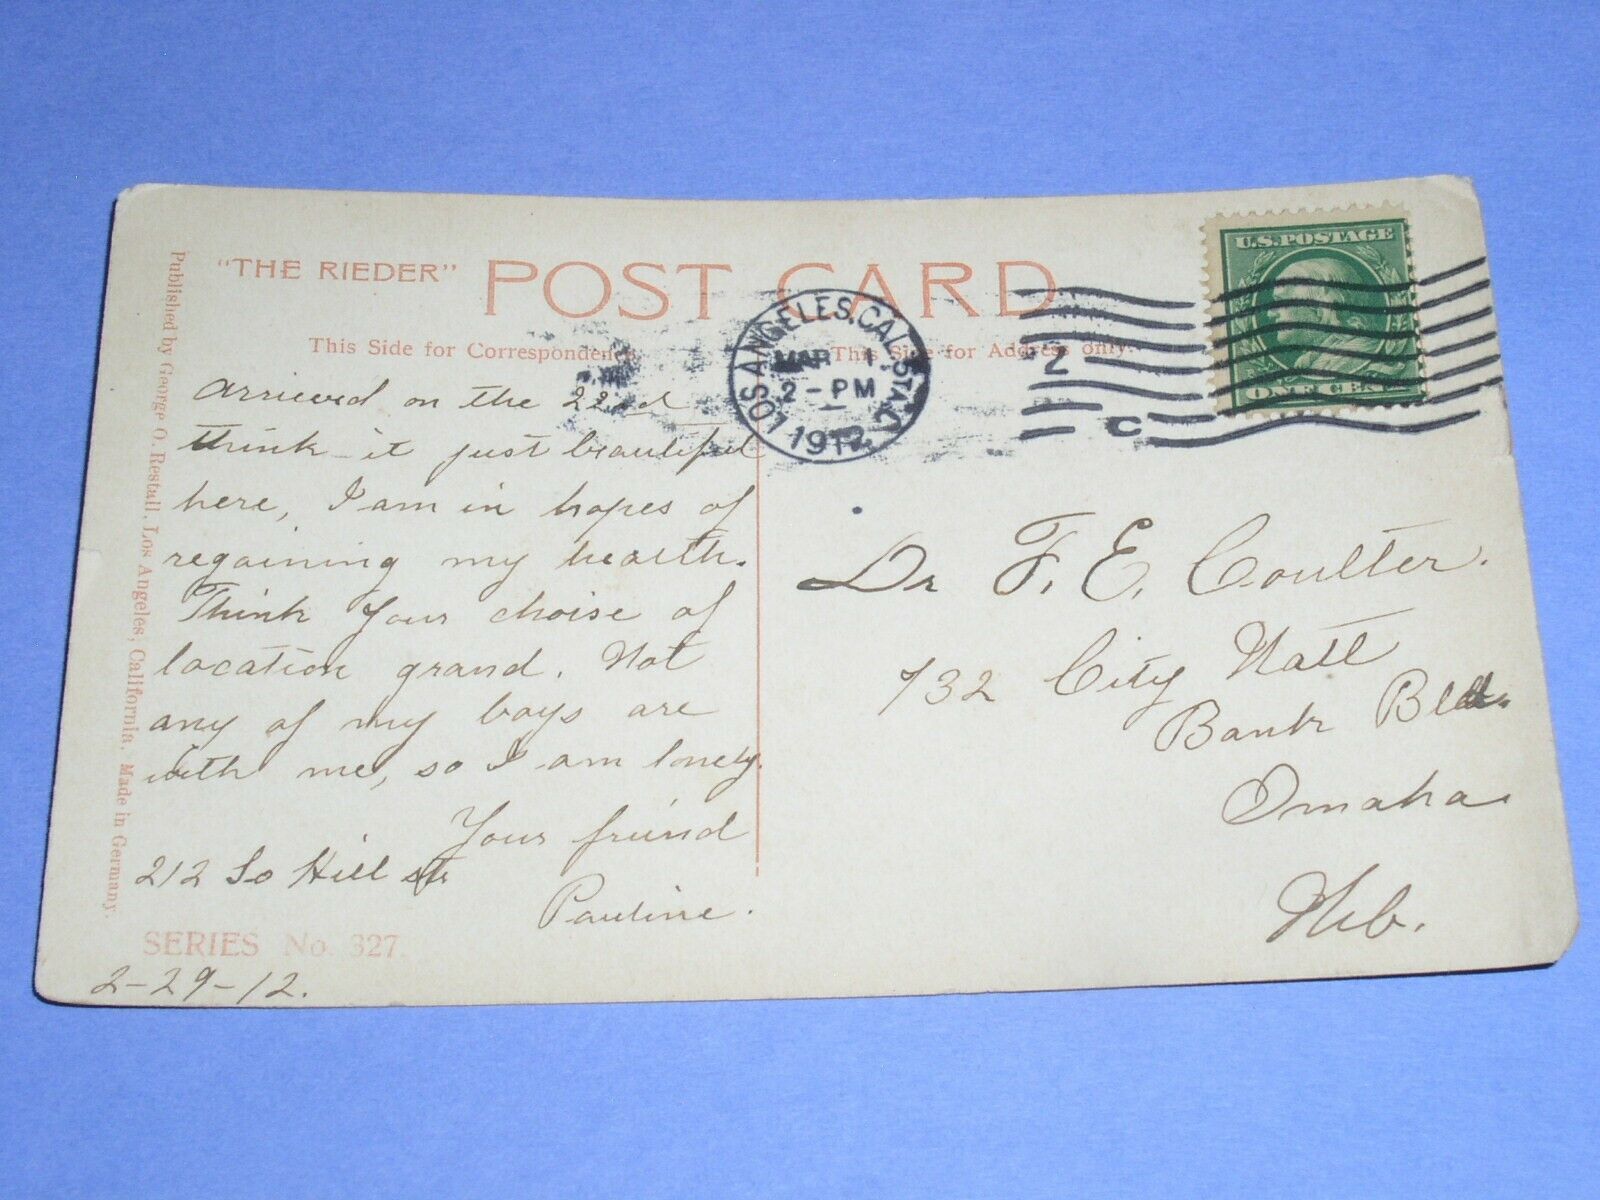 "THE RIEDER" POST CARD
This Side for Correspondence
This Side for Address only.
U.S. POSTAGE
ONE CENT
LOS ANGELES, CAL. STA. C
MAR 1
2 - PM
1912
Z
C
Published by George O. Restall, Los Angeles, California. Made in Germany.
Arrived on the 22nd
think it just beautiful
here, I am in hopes of
regaining my health.
Think your choise of
location grand. Not
any of my boys are
with me, so I am lonely.
Your friend
212 So Hill st
Pauline.
SERIES No. 327.
2-29-12.
Dr F. E. Coulter.
732 City Natl
Bank Bld.
Omaha
Neb.